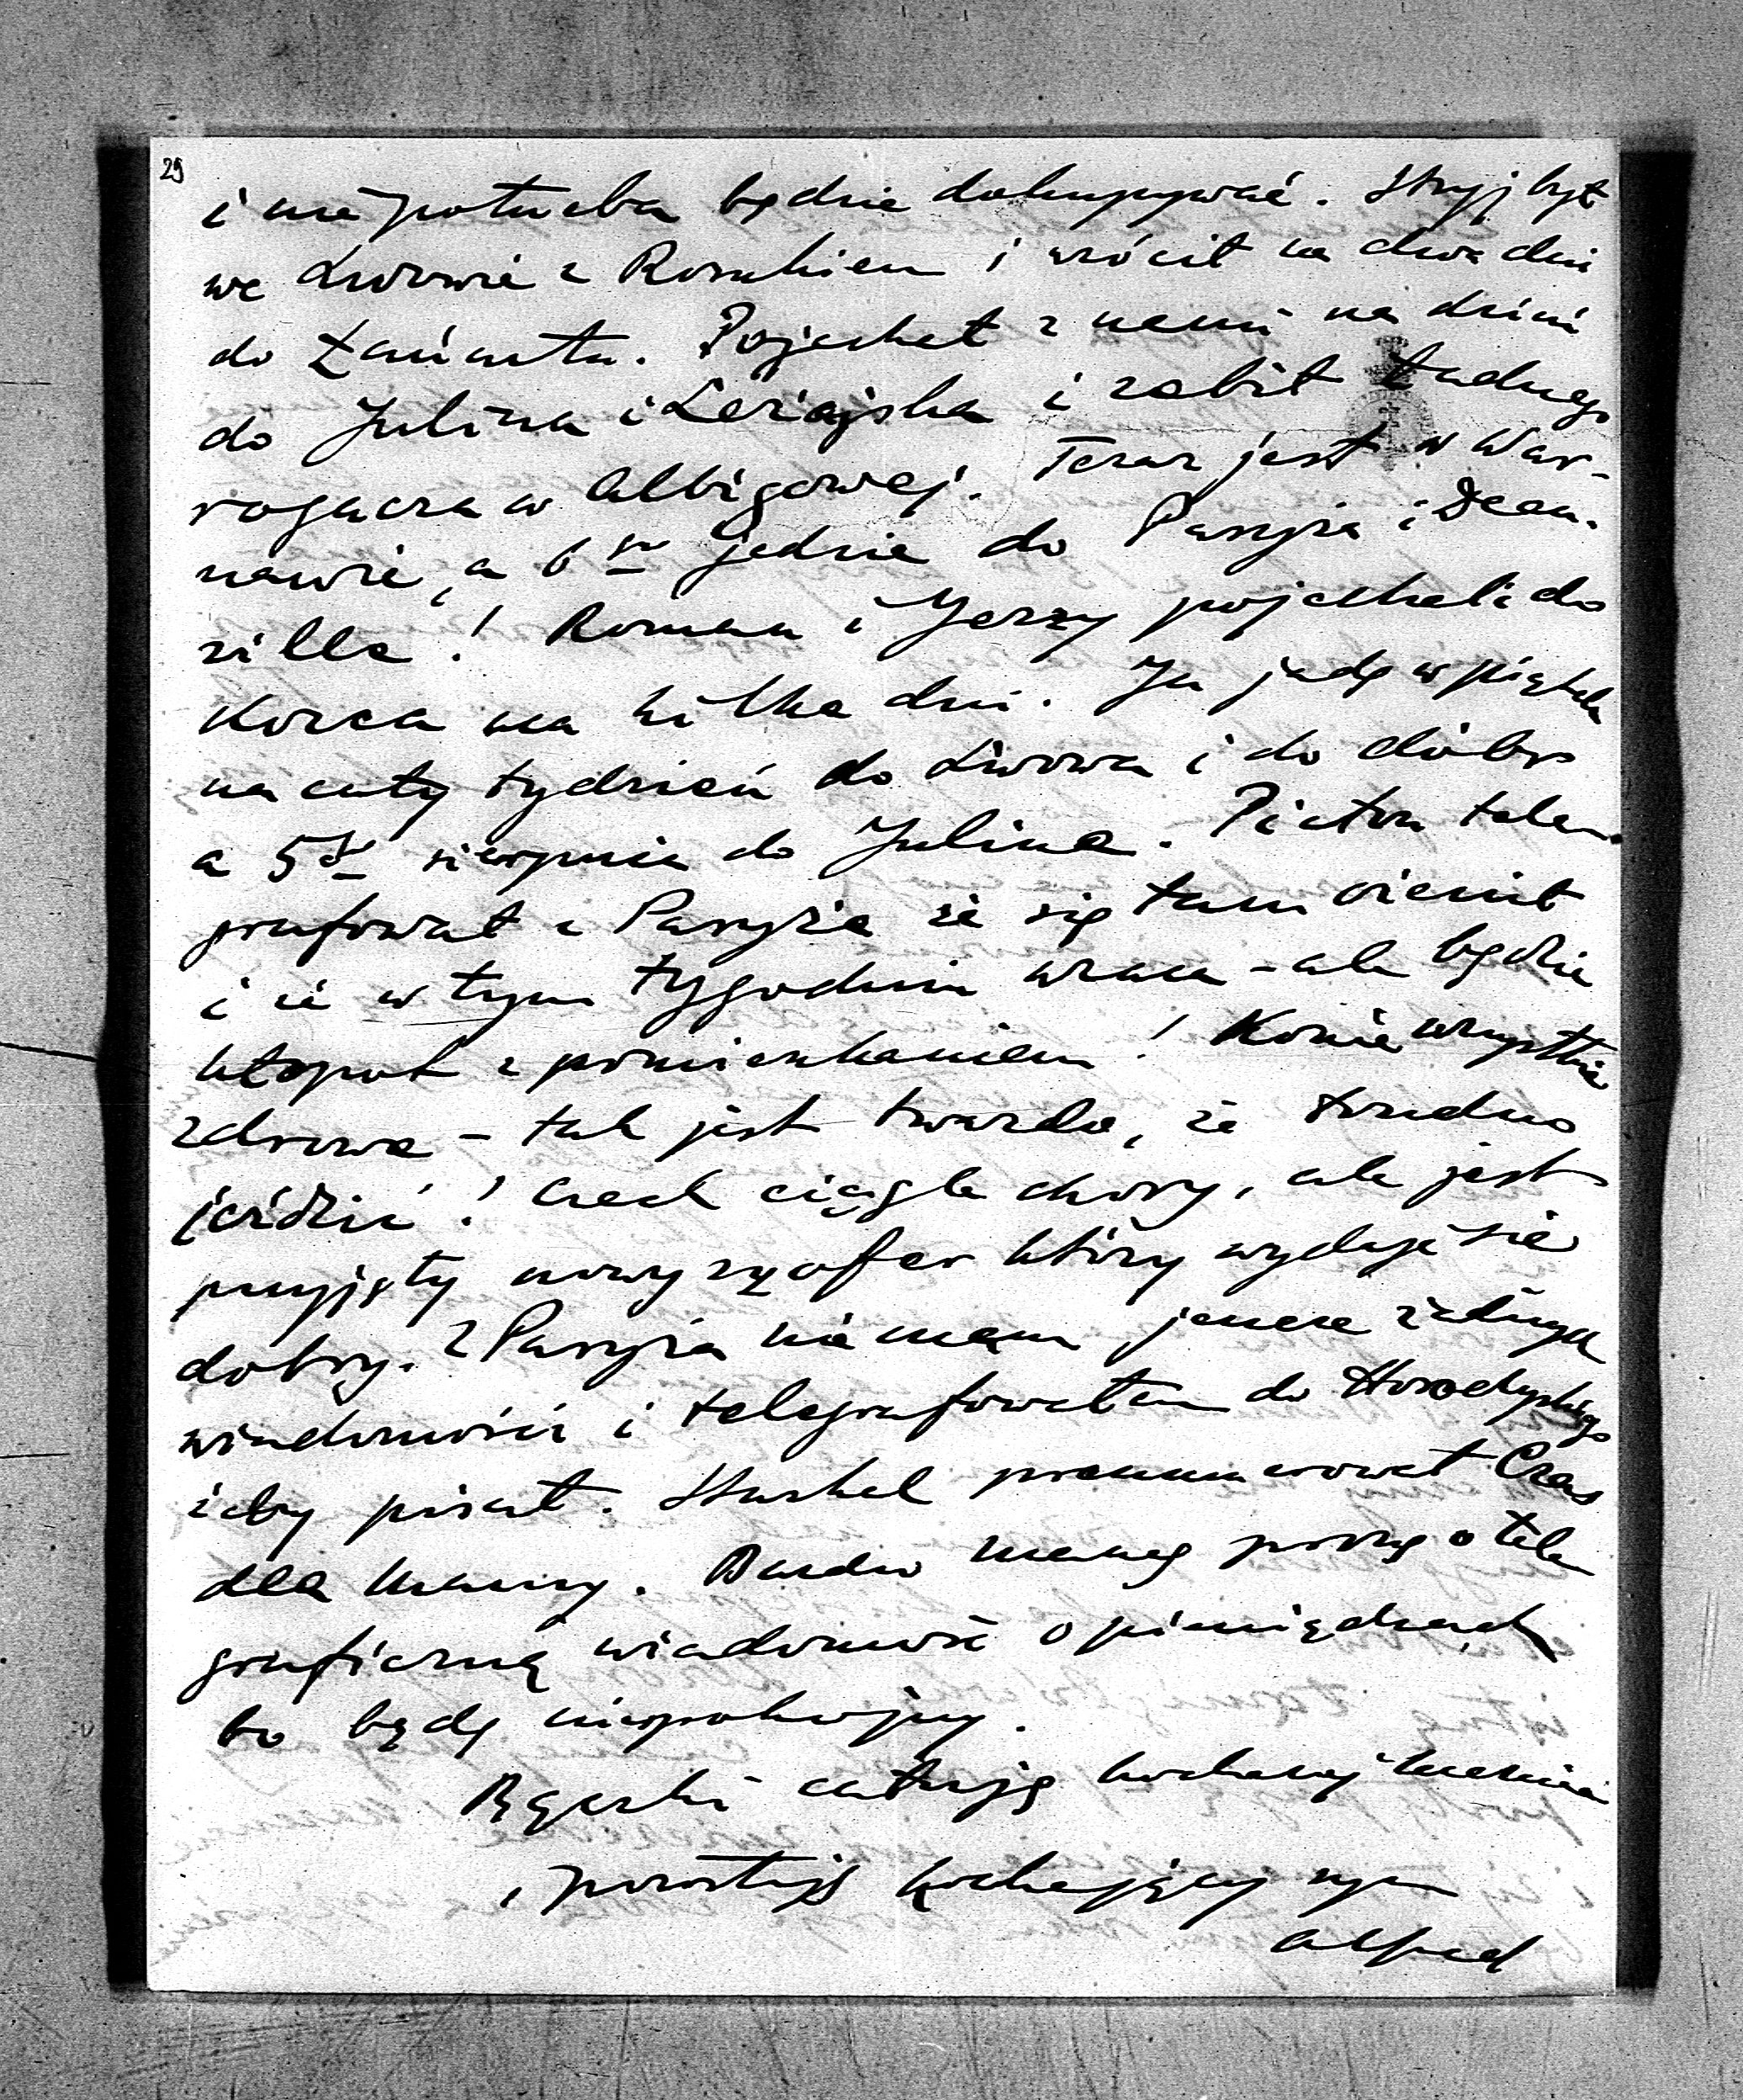 29
i nie potrzeba będzie dokupywać. Stryj był
we Lwowie z Romkiem i wrócił na dwa dni
do Łańcuta. Pojechał z nami na dzień
do Julina i Leżajska i zabił ładnego
rogacza w Albigowej. Teraz jest w War-
szawie, a 6go jedzie do Paryża i Deau-
ville! Roman i Jerzy pojechali do
Korca na kilka dni. Ja jadę w piątek
na cały tydzień do Lwowa i do dóbr
a 5go sierpnia do Julina. tele-
grafował z Paryża że się tam ożenił
i że w tym tygodniu wraca - ale będzie
kłopot z pomieszkaniem! Konie wszystkie
zdrowe - tak jest twardo, że trudno
jeździć! ciągle chory, ale jest
przyjęty nowy szofer który wydaje się
dobry. Z Paryża nie mam jeszcze żadnych
wiadomości i telegrafowałem do Horodyskiego
żeby pisał. prenumerował Czas
dla Mamy. Bardzo Mamę proszę o tele
graficzną wiadomość o pieniądzach
bo będę niespokojny.
Rączki całuję kochanej Mamie
i pozostaję kochający syn
Alfred